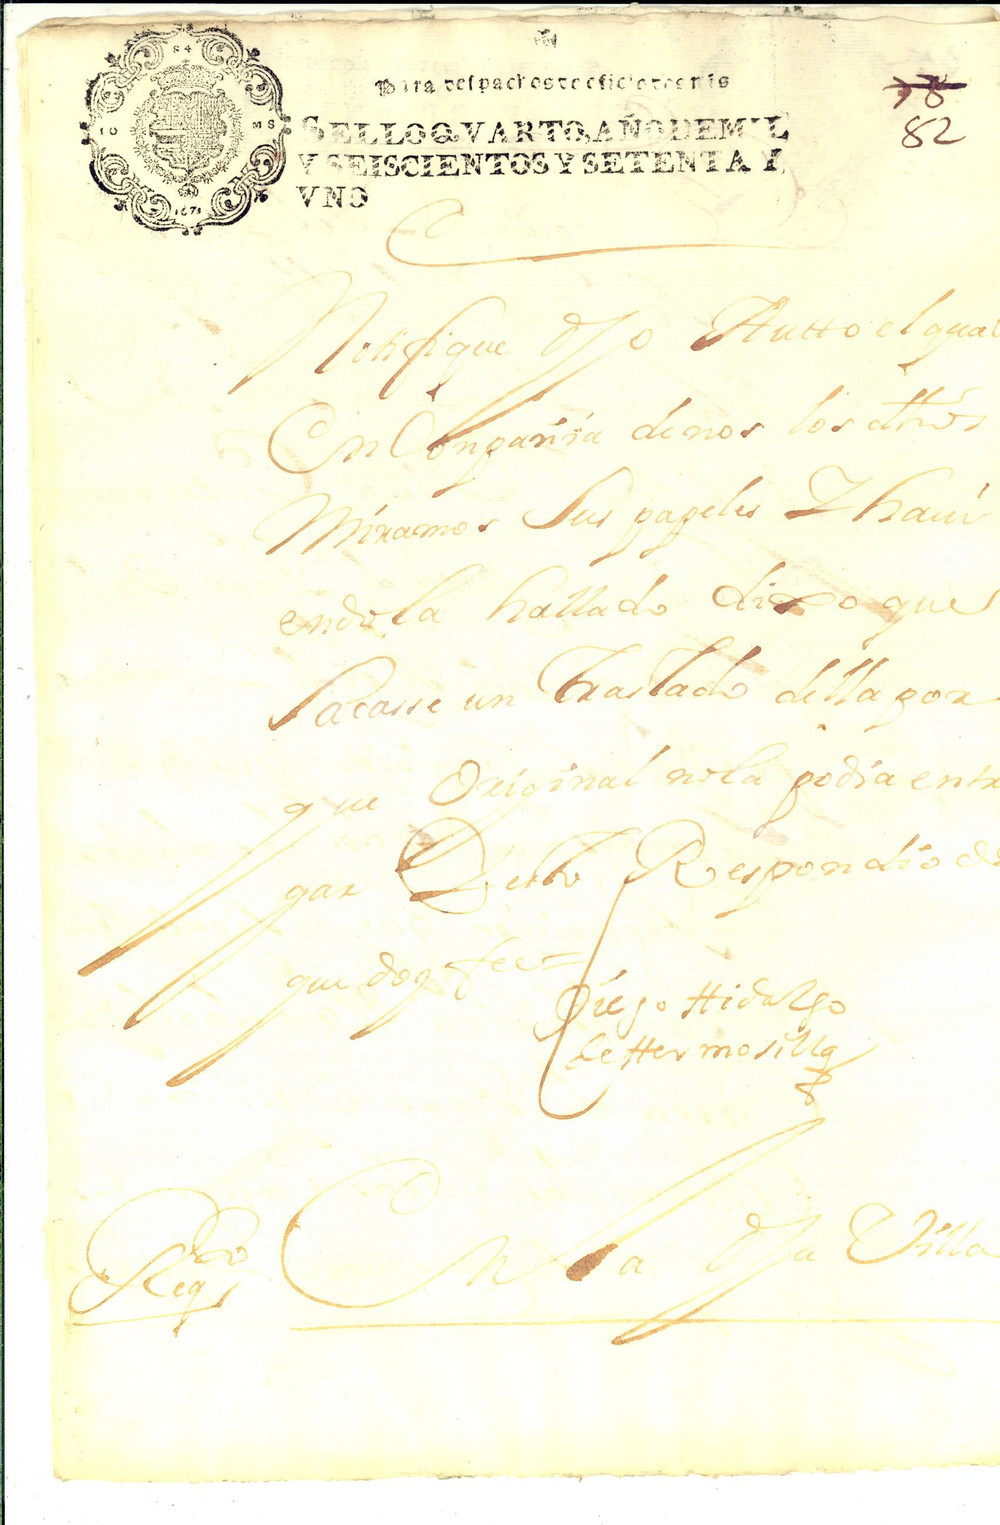 84
10 MS
1671
Para despachos de oficio dos mrs
SELLO QVARTO, AÑO DE MIL
Y SEISCIENTOS Y SETENTA Y
VNO
78
82
Notifique dho Autto el qual
En Compañia de nos los
Miramos sus papeles Y haui
endola hallado dixo que
sacasse un traslado della por
que Original no la podia entre
gar Desto Respondio de
que doy fee =
Diego Hidalgo
de Hermosilla
Reqto
En la dha Villa